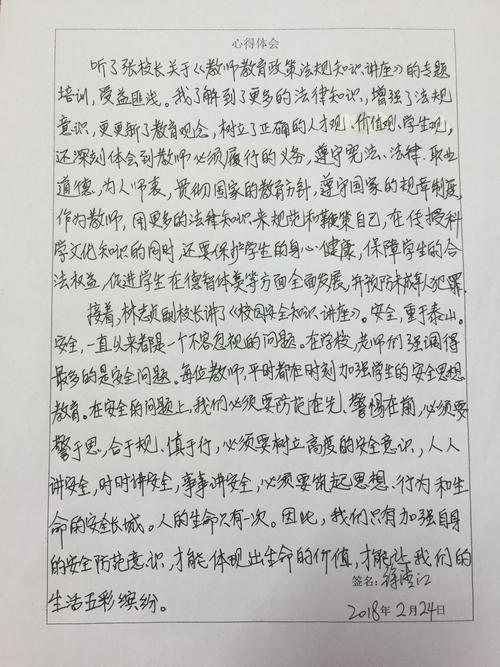 心得体会
听了张校长关于《教师教育政策法规知识讲座》的专题
培训，受益匪浅。我了解到了更多的法律知识，增强了法规
意识，更更新了教育观念，树立了正确的人才观、价值观、学生观，
还深刻体会到教师必须履行的义务，遵守宪法、法律、职业
道德，为人师表，贯彻国家的教育方针，遵守国家的规章制度，
作为教师，用更多的法律知识来规范和鞭策自己，在传授科
学文化知识的同时，还要保护学生的身心健康，保障学生的合
法权益，促进学生在德智体美等方面全面发展，并预防未成年人犯罪。
接着，林志贞副校长讲了《校园安全知识讲座》。安全，重于泰山。
安全，一直以来都是一个不容忽视的问题。在学校，老师们强调得
最多的是安全问题。每位教师，平时都在时刻加强学生的安全思想
教育。在安全的问题上，我们必须要防范在先、警惕在前，必须要
警于思，合于规、慎于行，必须要树立高度的安全意识，人人
讲安全，时时讲安全，事事讲安全，必须要筑起思想、行为和生
命的安全长城。人的生命只有一次。因此，我们只有加强自身
的安全防范意识，才能体现出生命的价值，才能让我们的
生活五彩缤纷。
签名：徐江
2018年2月24日